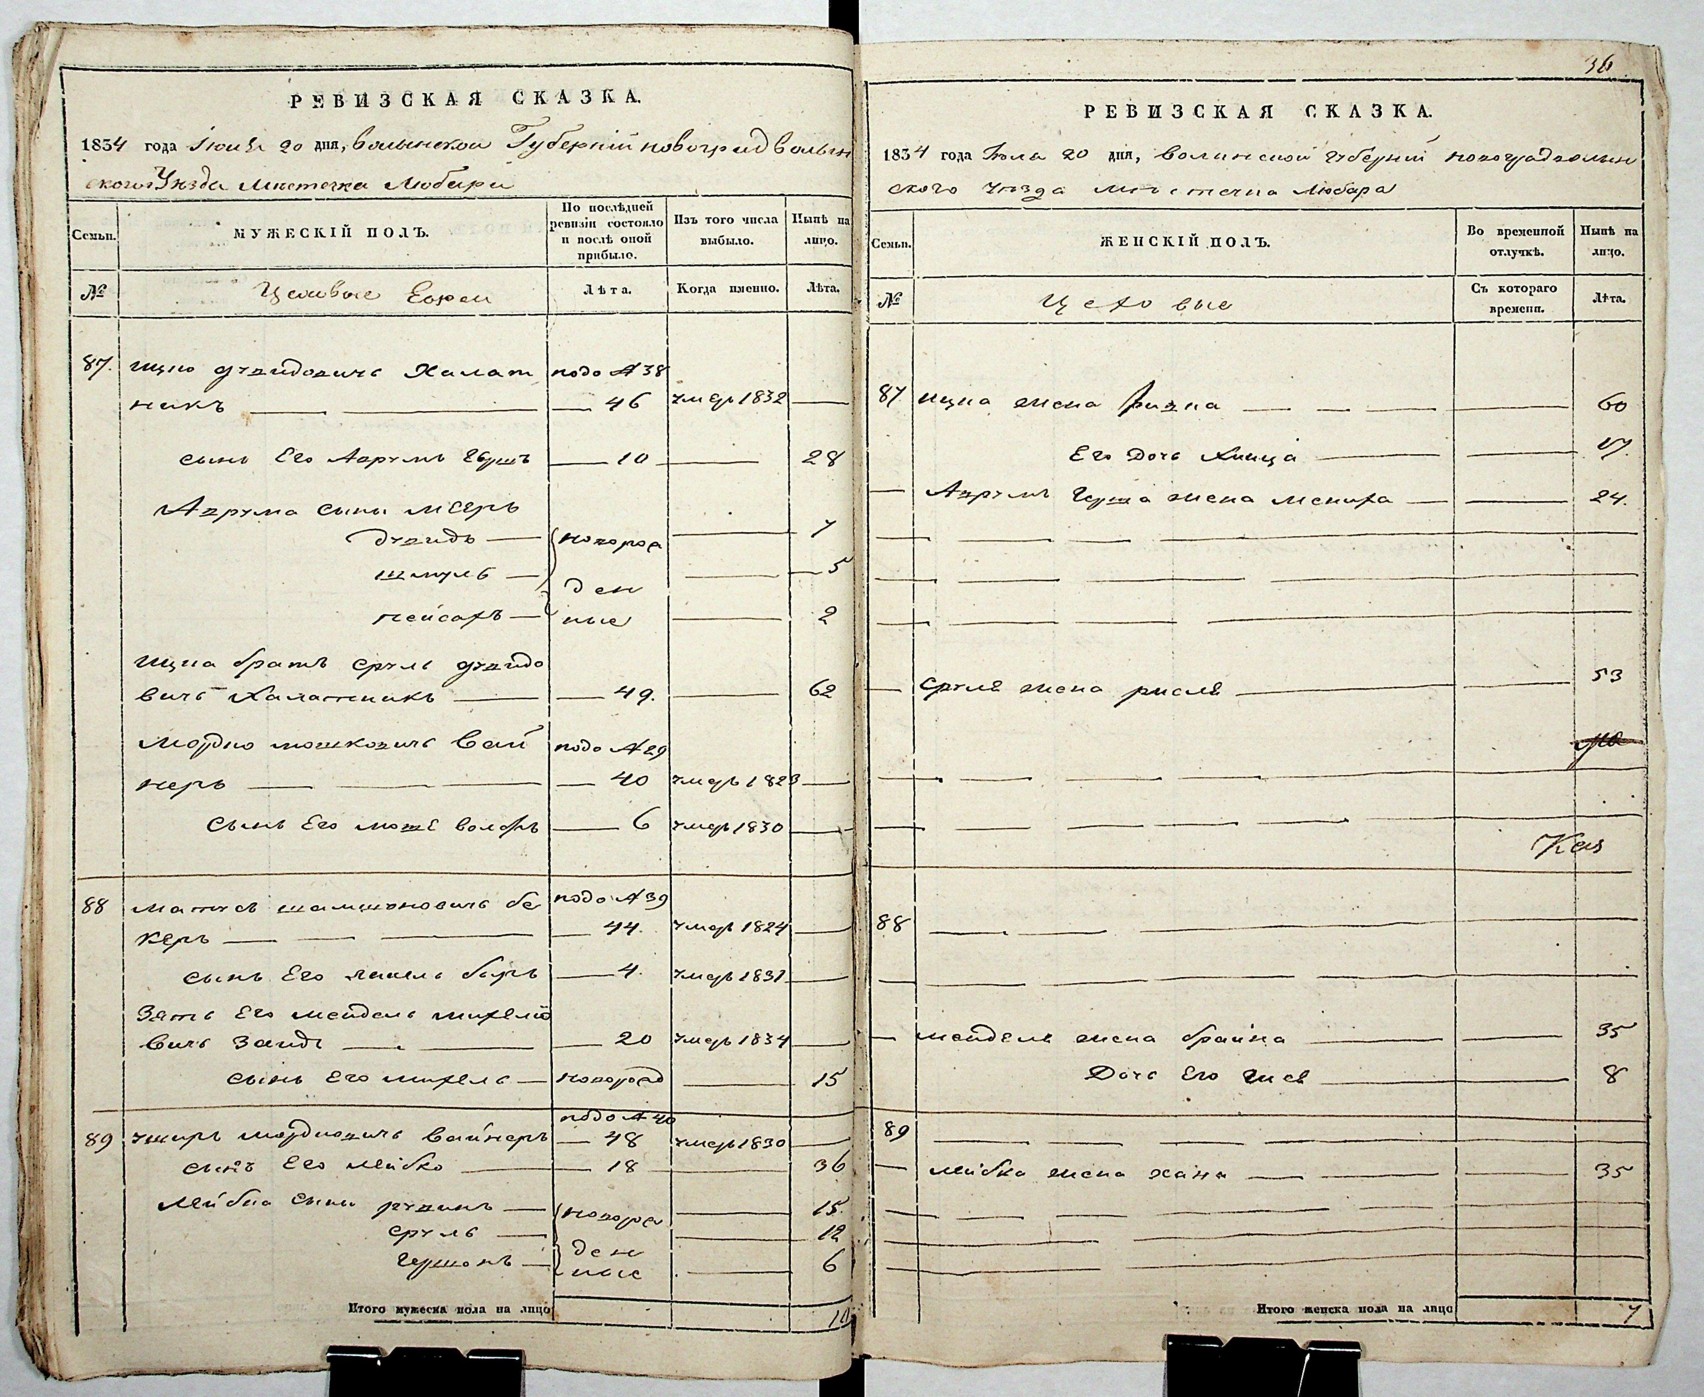 РЕВИЗСКАЯ СКАЗКА.
1834 года Іюля 20 дня, волынской Губерній новоградволын
ского Уезда местечка Любара
Семьи.
МУЖЕСКІЙ ПОЛЪ.
По послѣдней ревизіи состояло и послѣ оной прибыло.
Изъ того числа выбыло.
Нынѣ на лицо.
№
Цеховые Евреи
Лѣта.
Когда именно.
Лѣта.
87. ицко дувидовичъ Халат подо №38
никъ 46 умеръ 1832
сынъ Его Аврумъ Гершъ 10 28
Аврума сыны мееръ
дувидъ новоро 7
шмуль ден 5
пейсахъ ные 2
ицка братъ сруль дувидо
вичъ Халатникъ 49. 62
Мордко мошковичъ Вай подо №29
неръ 40 умеръ 1823
сынъ Его моше волфъ 6 умеръ 1830
88 матусъ шамшоновичъ бе подо №39
керъ 44. умеръ 1824
сынъ Его беръ 4. умеръ 1831
Зять Его мендель михелио
вичъ Зайдъ 20 умеръ 1834
сынъ Его михель новород 15
89 уширъ мордковичъ вайнеръ подо №40 48 умеръ 1830
сынъ Его лейбко 18 36
Лейбка сыны рувинъ новоро 15.
сруль ден 12
Гершонъ ные 6
Итого мужеска пола на лицо 10
36
РЕВИЗСКАЯ СКАЗКА.
1834 года Іюла 20 дня, волинской губерній новоградволын
ского уезда местечка Любара
Семьи.
ЖЕНСКІЙ ПОЛЪ.
Во временной отлучкѣ.
Нынѣ на лицо.
№
Цеховые
Съ котораго времени.
Лѣта.
87 ицка жена ривка 60
Его дочь 17.
Аврумъ Герша жена мениха 24.
Сруля жена рисля 53
Каз
88
мендель жена брайна 35
Дочь Его 8
89
лейбка жена хана 35
Итого женска пола на лицо 7